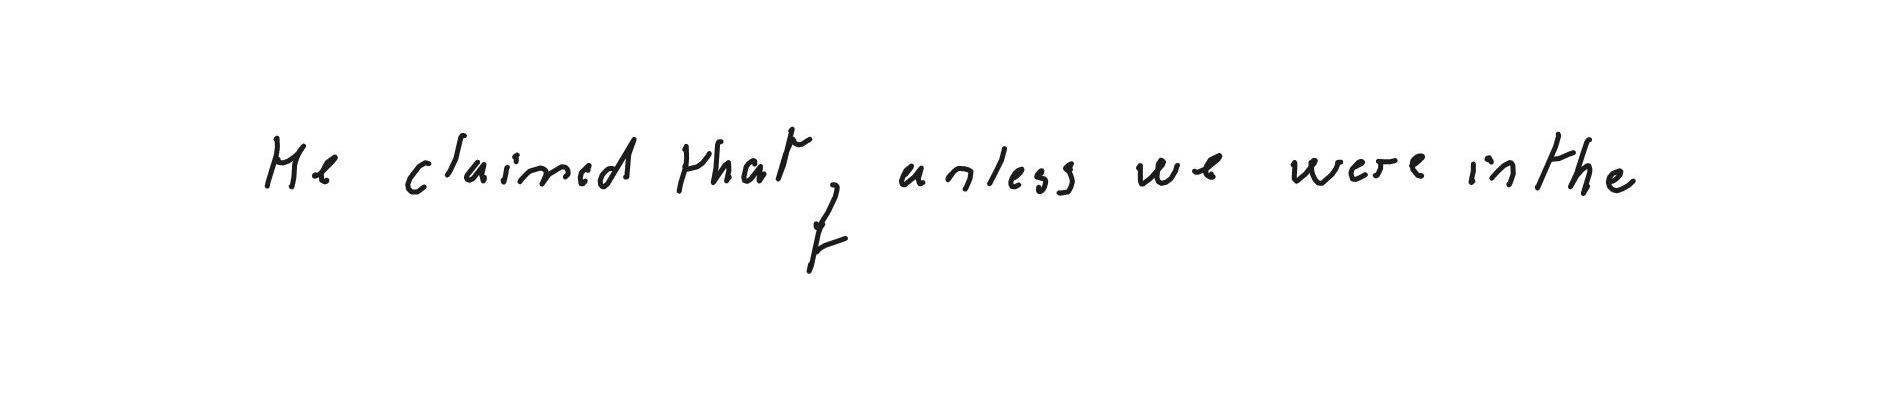 He claimed that, unless we were in the